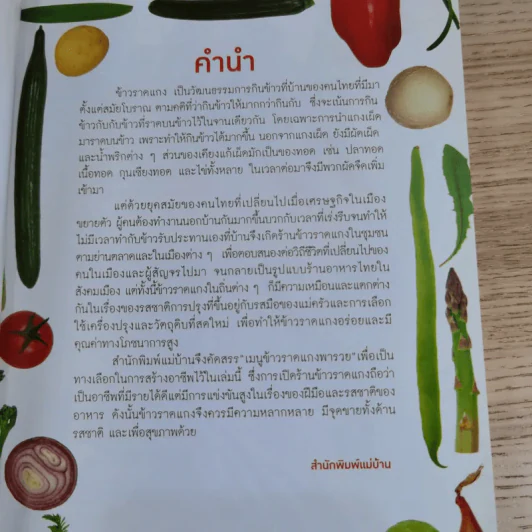 คำนำ
ข้าวราดแกง เป็นวัฒนธรรมการกินข้าวที่บ้านของคนไทยที่มีมา
ตั้งแต่สมัยโบราณ ตามคติที่ว่ากินข้าวให้มากกว่ากินกับ ซึ่งจะเน้นการกิน
ข้าวกับกับข้าวที่ราดบนข้าวไว้ในจานเดียวกัน โดยเฉพาะการนำแกงเผ็ด
มาราดบนข้าว เพราะทำให้กินข้าวได้มากขึ้น นอกจากแกงเผ็ด ยังมีผัดเผ็ด
และน้ำพริกต่าง ๆ ส่วนของเคียงแก้เผ็ดมักเป็นของทอด เช่น ปลาทอด
เนื้อทอด กุนเชียงทอด และไข่ทั้งหลาย ในเวลาต่อมาจึงมีพวกผัดจืดเพิ่ม
เข้ามา
แต่ด้วยยุคสมัยของคนไทยที่เปลี่ยนไปเมื่อเศรษฐกิจในเมือง
ขยายตัว ผู้คนต้องทำงานนอกบ้านกันมากขึ้นบวกกับเวลาที่เร่งรีบจนทำให้
ไม่มีเวลาทำกับข้าวรับประทานเองที่บ้านจึงเกิดร้านข้าวราดแกงในชุมชน
ตามย่านตลาดและในเมืองต่าง ๆ เพื่อตอบสนองต่อวิถีชีวิตที่เปลี่ยนไปของ
คนในเมืองและผู้สัญจรไปมา จนกลายเป็นรูปแบบร้านอาหารไทยใน
สังคมเมือง แต่ทั้งนี้ข้าวราดแกงในถิ่นต่าง ๆ ก็มีความเหมือนและแตกต่าง
กันในเรื่องของรสชาติการปรุงที่ขึ้นอยู่กับรสมือของแม่ครัวและการเลือก
ใช้เครื่องปรุงและวัตถุดิบที่สดใหม่ เพื่อทำให้ข้าวราดแกงอร่อยและมี
คุณค่าทางโภชนาการสูง
สำนักพิมพ์แม่บ้านจึงคัดสรร"เมนูข้าวราดแกงพารวย"เพื่อเป็น
ทางเลือกในการสร้างอาชีพไว้ในเล่มนี้ ซึ่งการเปิดร้านข้าวราดแกงถือว่า
เป็นอาชีพที่มีรายได้ดีแต่มีการแข่งขันสูงในเรื่องของฝีมือและรสชาติของ
อาหาร ดังนั้นข้าวราดแกงจึงควรมีความหลากหลาย มีจุดขายทั้งด้าน
รสชาติ และเพื่อสุขภาพด้วย
สำนักพิมพ์แม่บ้าน